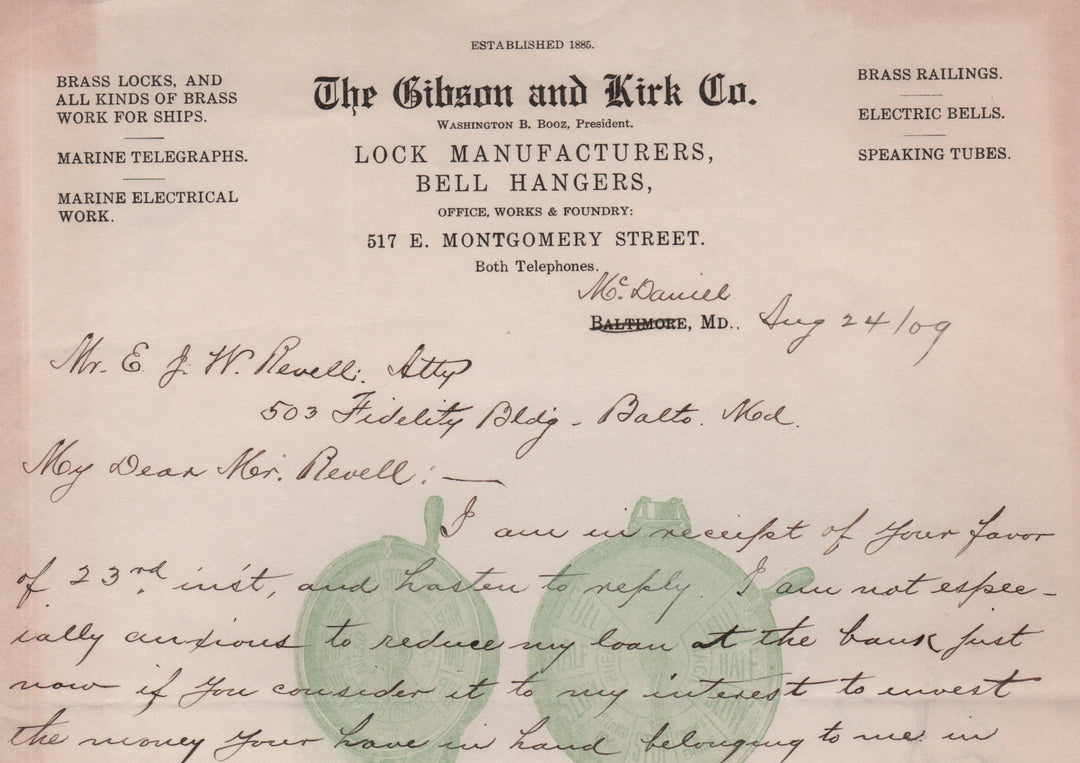 ESTABLISHED 1885.
The Gibson and Kirk Co.
WASHINGTON B. BOOZ, President.
LOCK MANUFACTURERS,
BELL HANGERS,
OFFICE, WORKS & FOUNDRY:
517 E. MONTGOMERY STREET.
Both Telephones.
BRASS LOCKS, AND
ALL KINDS OF BRASS
WORK FOR SHIPS.
MARINE TELEGRAPHS.
MARINE ELECTRICAL
WORK.
BRASS RAILINGS.
ELECTRIC BELLS.
SPEAKING TUBES.
McDaniel
BALTIMORE, MD., Aug 24/09
Mr. E. J. W. Revell. Atty
503 Fidelity Bldg - Balto. Md.
My Dear Mr. Revell: —
I am in receipt of your favor
of 23rd, inst, and hasten to reply. I am not espec-
ially anxious to reduce my loan at the bank just
now if you consider it to my interest to invest
the money your have in hand belonging to me in
FULL
HALF
SLOW
FULL
HALF
SLOW